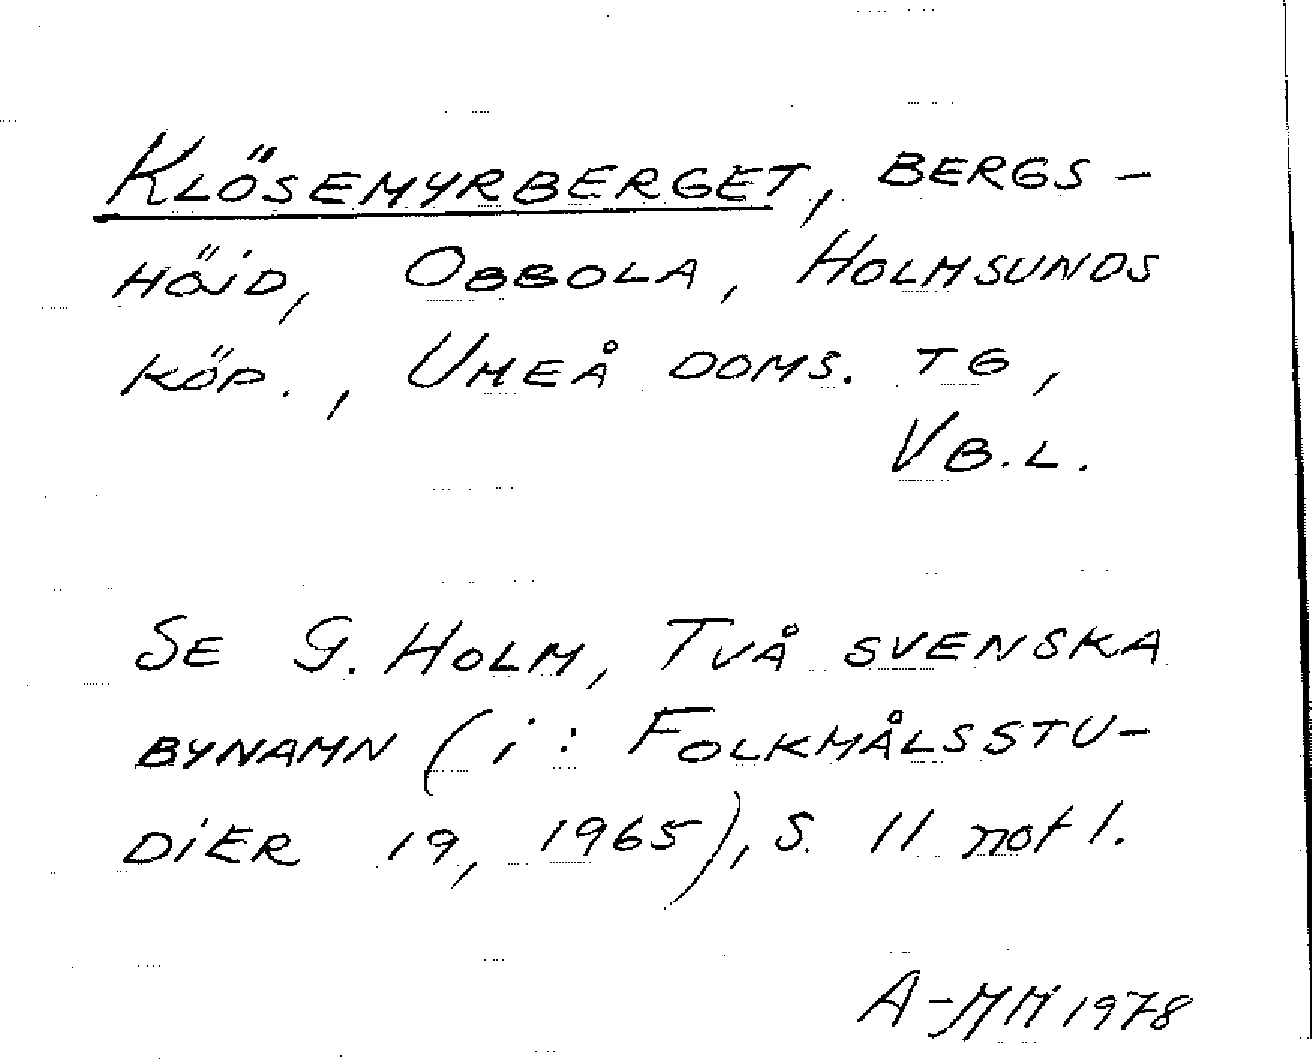 KLÖSEMYRBERGET, BERGS-
HÖJD, OBBOLA, HOLMSUNDS
KÖP., UMEÅ DOMS. TG,
VB.L.
SE G. HOLM, TVÅ SVENSKA
BYNAMN (i: FOLKMÅLSSTU-
DIER 19, 1965), S. 11 not 1.
A-MH 1978